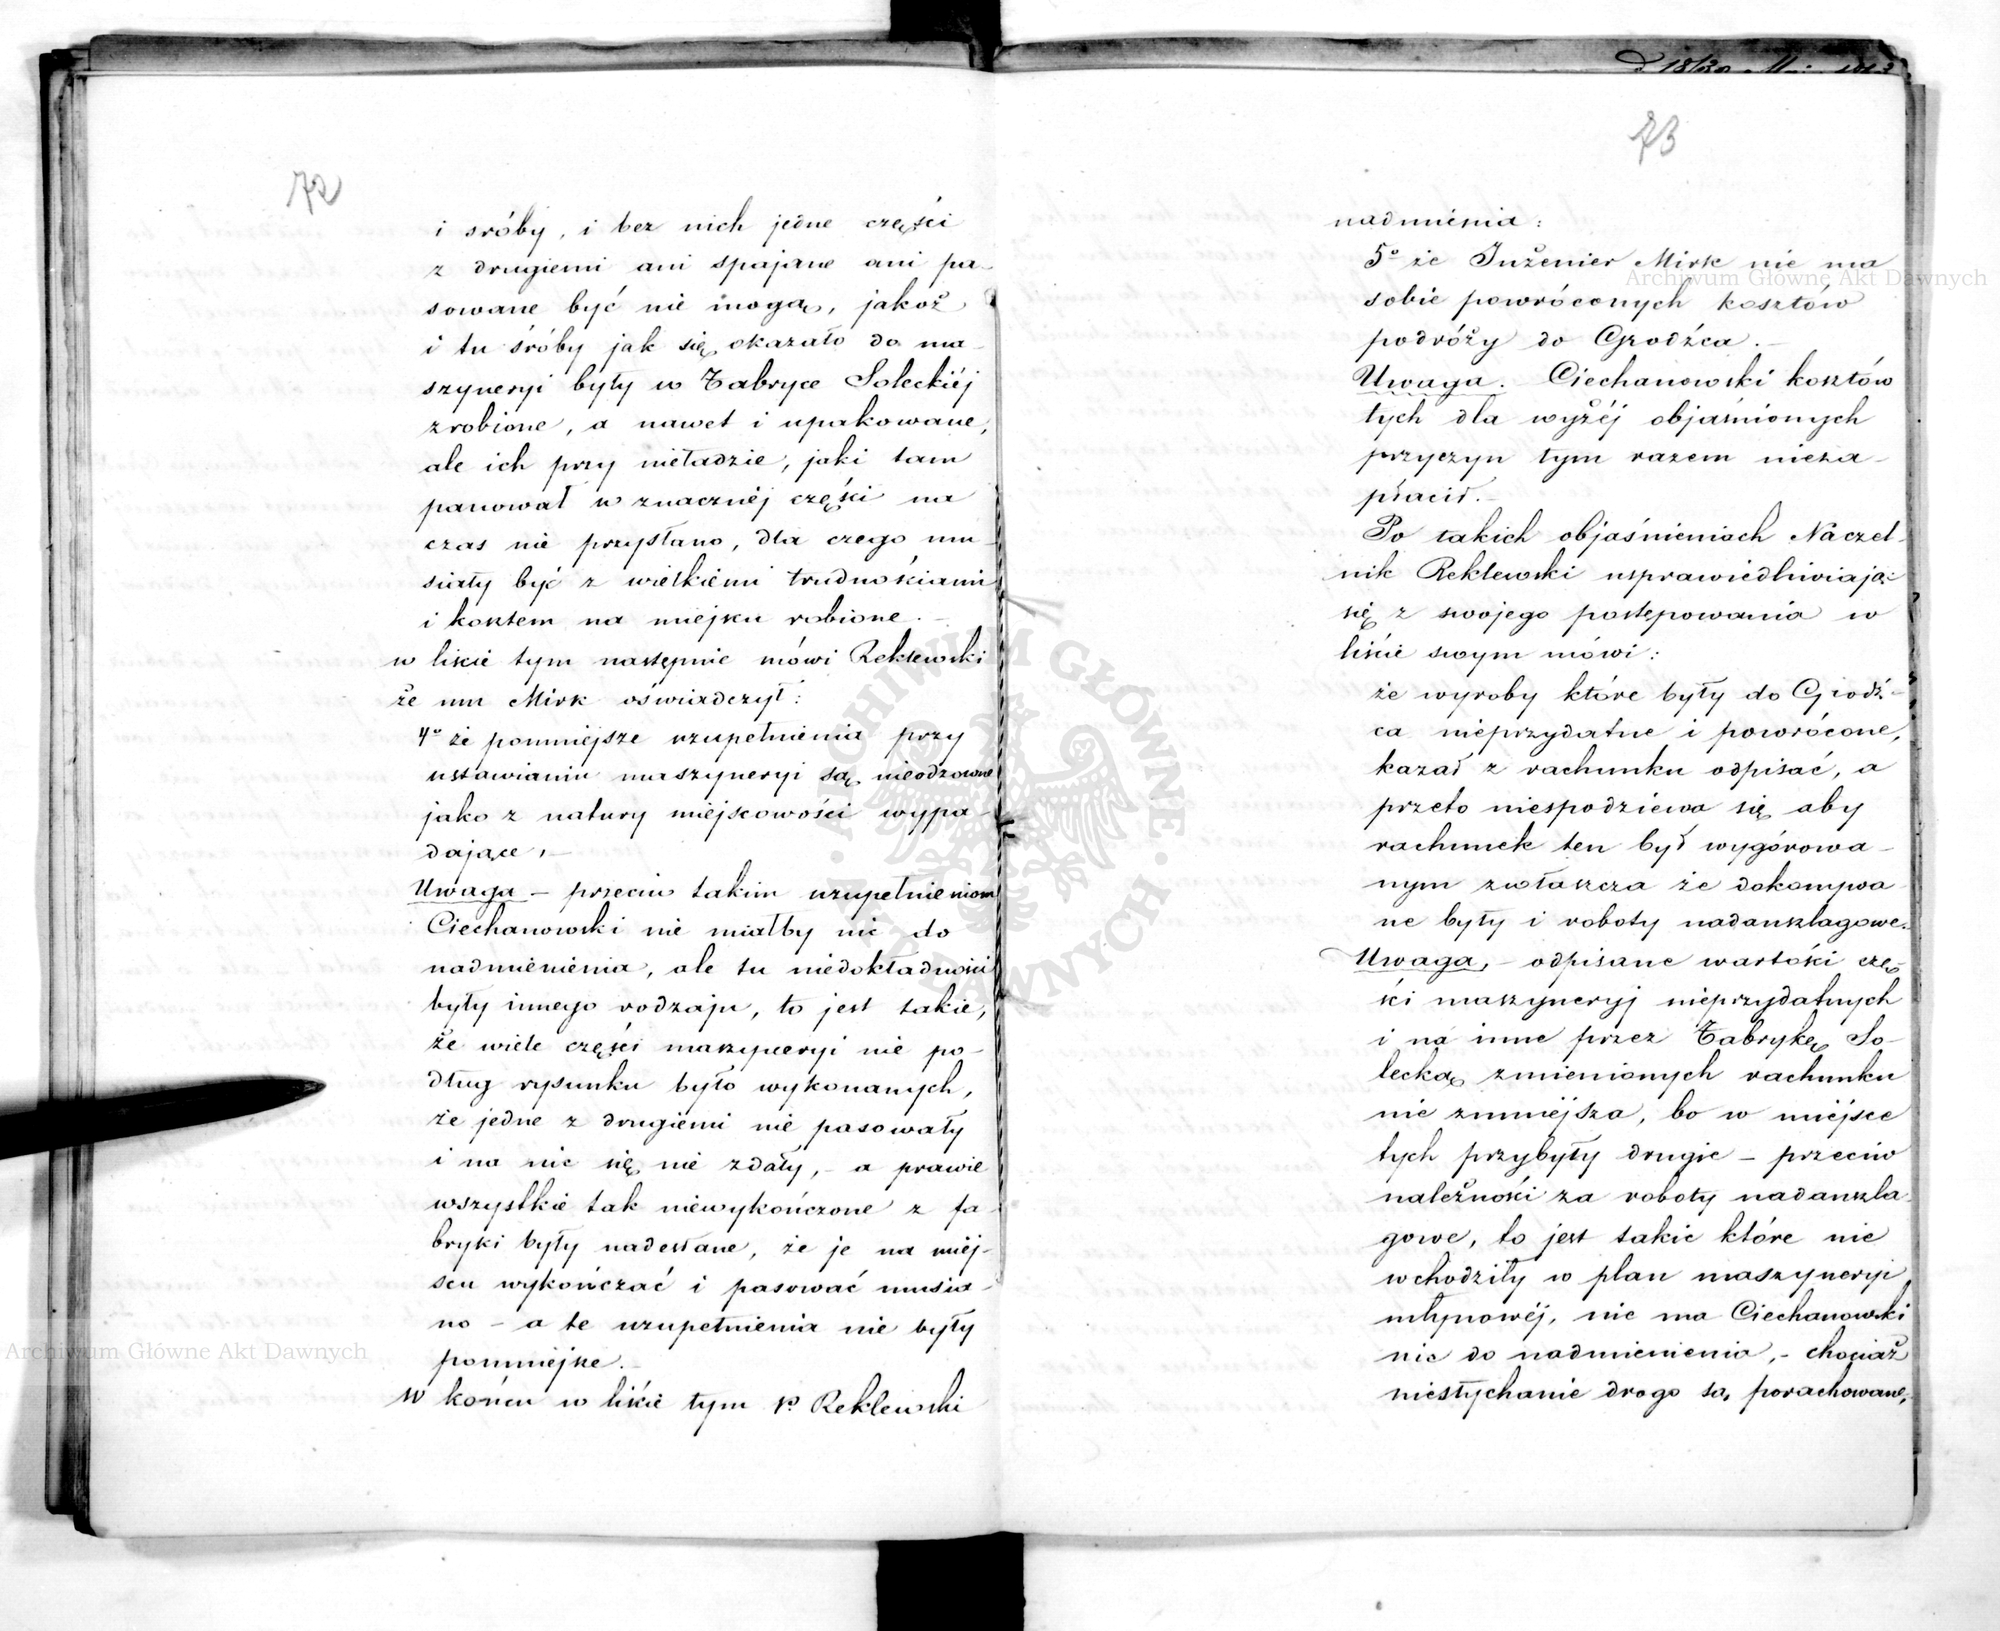 72
i sróby, i bez nich jedne części
z drugiemi ani spajane ani pa-
sowane być nie mogą, jakoż
i tu śróby jak się okazało do ma-
szyneryi były w Fabryce Soleckiéj
zrobione, a nawet i upakowane,
ale ich przy nieładzie, jaki tam
panował w znacznéj części na
czas nie przysłano, dla czego mu-
siały być z wielkiemi trudnościami
i kosztem na miejscu robione.-
w liście tym następnie mówi Reklewski
że mu Mirk oświadczył:
4o że pomniejsze uzupełnienia przy
ustawianiu maszyneryi są nieodzowne
jako z natury miejscowości wypa-
dające,-
Uwaga - przeciw takim uzupełnieniom
Ciechanowski nie miałby nic do
nadmienienia, ale tu niedokładności
były innego rodzaju, to jest takie,
że wiele części maszyneryi nie po-
dług rysunku było wykonanych,
że jedne z drugiemi nie pasowały
i na nic się nie zdały,- a prawie
wszystkie tak niewykończone z fa-
bryki były nadesłane, że je na miéj-
scu wykończać i pasować musia-
no - a te uzupełnienia nie były
pomniejsze.-
W końcu w liście tym Reklewski
73
nadmienia:
5o że Inżenier Mirk nie ma
sobie powróconych kosztów
podróży do Grodźca.-
Uwaga. Ciechanowski kosztów
tych dla wyżéj objaśnionych
przyczyn tym razem nieza-
płacił.-
Po takich objaśnieniach Naczel-
nik Reklewski usprawiedliwiając
się z swojego postępowania w
liście swym mówi:
że wyroby które były do Grodź-
ca nieprzydatne i powrócone,
kazał z rachunku odpisać, a
przeto niespodziewa się aby
rachunek ten był wygórowa-
nym zwłaszcza że dokonywa-
ne były i roboty nadanszlagowe.
Uwaga,- odpisane wartości czę-
ści maszyneryj nieprzydatnych
i na inne przez Fabrykę So-
lecką zmienionych rachunku
nie zmniejsza, bo w miejsce
tych przybyły drugie - przeciw
należności za roboty nadanszla-
gowe, to jest takie które nie
wchodziły w plan maszyneryi
młynowéj, nie ma Ciechanowski
nic do nadmienienia,- chociaż
niesłychanie drogo są porachowane,
Archiwum Główne Akt Dawnych
Archiwum Główne Akt Dawnych
ARCHIWUM GŁÓWNE AKT DAWNYCH